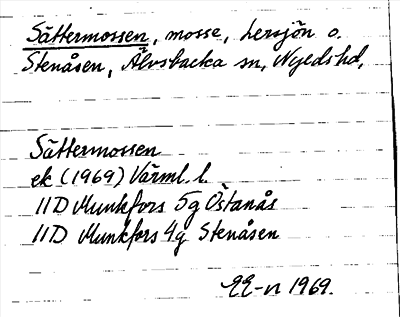 Sättermossen, mosse, Lersjön o.
Stenåsen, Älvsbacka sn, Nyeds hd,
Sättermossen
ek (1969) Värml. l.
11D Munkfors 5g Östanås
11D Munkfors 4g Stenåsen
1969.